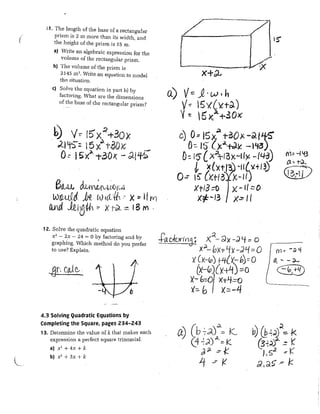 11. The length of the base of a rectangular
prism is 2 m more than its width, and
the height of the prism is 15 m.
a) Write an algebraic expression for the
volume of the rectangular prism.
b) The volume of the prism is
2145 m³. Write an equation to model
the situation.
c) Solve the equation in part b) by
factoring. What are the dimensions
of the base of the rectangular prism?
15
x+2
x
a) V = l·w·h
V = 15x(x+2)
V = 15x²+30x
b) V = 15x²+30x
2145 = 15x²+30x
0 = 15x²+30x - 2145
Base dimensions
would be width = x = 11 m
and length = x+2 = 13 m
c) 0 = 15x²+30x-2145
0 = 15(x²+2x-143)
0 = 15(x²+13x-11x-143)
x(x+13)-11(x+13)
0 = 15(x+13)(x-11)
x+13=0 x-11=0
x≠-13 x=11
m=-143
a=+2
(13,-11)
12. Solve the quadratic equation
x² − 2x − 24 = 0 by factoring and by
graphing. Which method do you prefer
to use? Explain.
gr. calc.
-4 6
factoring: x²-2x-24=0
x²-6x+4x-24=0
x(x-6)+4(x-6)=0
(x-6)(x+4)=0
x-6=0 x+4=0
x=6 x=-4
m=-24
a=-2
(-6,+4)
4.3 Solving Quadratic Equations by
Completing the Square, pages 234–243
13. Determine the value of k that makes each
expression a perfect square trinomial.
a) x² + 4x + k
b) x² + 3x + k
a) (b÷2)² = k
(4÷2)² = k
2² = k
4 = k
b) (b÷2)² = k
(3÷2)² = k
1.5² = k
2.25 = k